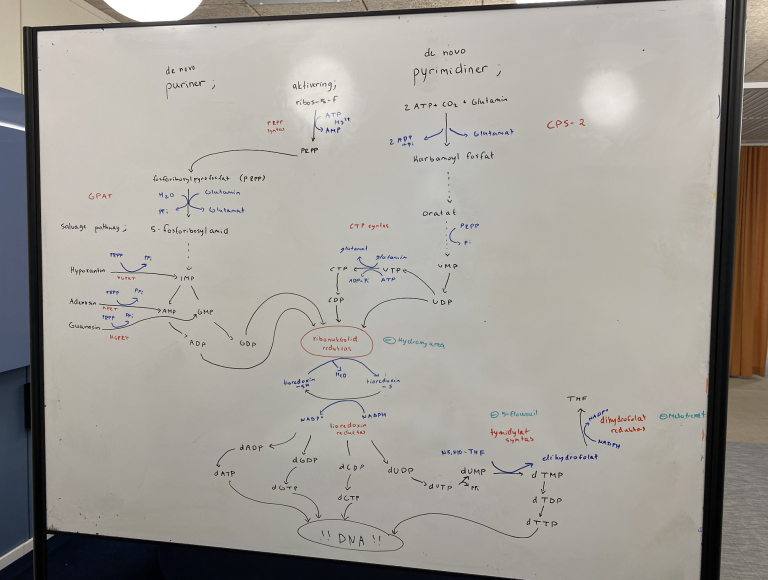 de novo
puriner ;
aktivering ;
ribos-5-F
ATP
Mg2+
AMP
PRPP
syntas
PRPP
fosforibosylpyrofosfat (PRPP)
GPAT
H2O
Glutamin
PPi
Glutamat
5-fosforibosylamid
Salvage pathway ;
Hypoxantin
PRPP
PPi
HGPRT
IMP
Adenosin
PRPP
PPi
APRT
AMP
GMP
Guanosin
PRPP
PPi
HGPRT
ADP
GDP
de novo
pyrimidiner ;
2 ATP + CO2 + Glutamin
CPS-2
2 ADP
+Pi
Glutamat
Karbamoyl fosfat
Orotat
PRPP
Pi
UMP
UDP
CTP syntas
glutamat
glutamin
CTP
UTP
ADP+Pi
ATP
CDP
ribonukleotid
reduktas
⊖ Hydroxyurea
tioredoxin
-SH
H2O
tioredoxin
-S
NADP+
NADPH
tioredoxin
reduktas
dADP
dGDP
dCDP
dUDP
dATP
dGTP
dCTP
dUTP
PPi
dUMP
N5,N10-THF
⊖ 5-fluoruracil
tymidylat
syntas
dihydrofolat
THF
NADP+
NADPH
dihydrofolat
reduktas
dTMP
dTDP
dTTP
!! DNA !!